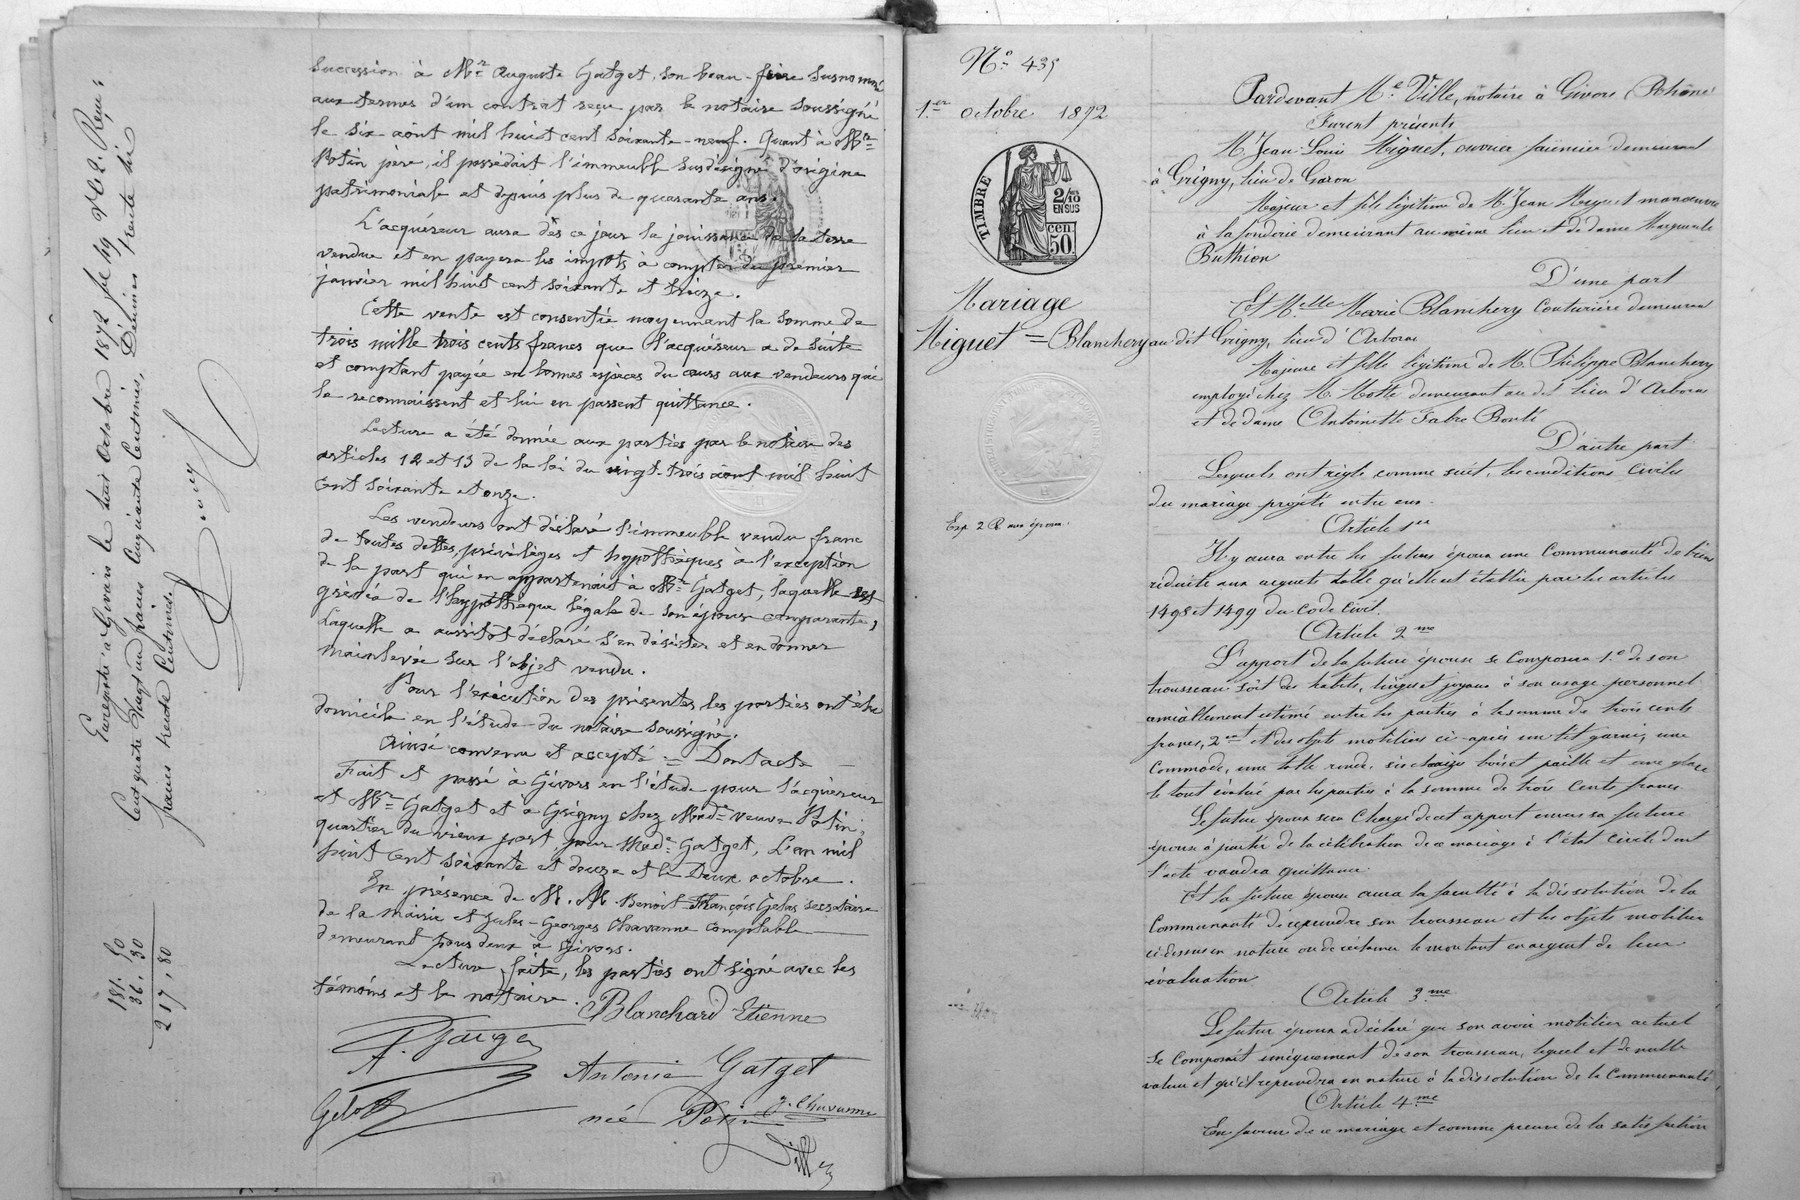 succession à Mr Auguste Gatget, son beau-frère susnommé
aux termes d'un contrat reçu par le notaire soussigné
le six août mil huit cent soixante-neuf. Quant à Mr
Potin père, il possédait l'immeuble susdésigné d'origine
patrimoniale et depuis plus de quarante ans.
L'acquéreur aura dès ce jour la jouissance de la terre
vendue et en payera les impots à compter du premier
janvier mil huit cent soixante et treize.
Cette vente est consentie moyennant la somme de
trois mille trois cents francs que l'acquéreur a de suite
et comptant payée en bonnes espèces du cours aux vendeurs qui
le reconnaissent et lui en passent quittance.
Lecture a été donnée aux parties par le notaire des
articles 12 et 13 de la loi du vingt-trois août mil huit
cent soixante et onze.
Les vendeurs ont déclaré l'immeuble vendu franc
de toutes dettes, privilèges et hypothèques à l'exception
de la part qui en appartenait à Mr Gatget, laquelle est
grevée de l'hypothèque légale de son épouse comparante,
Laquelle a aussitôt déclaré s'en désister et en donner
mainlevée sur l'objet vendu.
Pour l'exécution des présentes, les parties ont élu
domicile en l'étude du notaire soussigné.
Ainsi convenu et accepté = Dont acte
Fait et passé à Givors en l'étude pour l'acquéreur
et Mr Gatget et à Grigny chez Made veuve Potin,
quartier du vieux port, pour Made Gatget, L'an mil
huit cent soixante et douze et le Deux octobre.
En présence de M. M. Benoit-François Gelas secrétaire
de la mairie et Jules-Georges Chavanne comptable
demeurant tous deux à Givors.
Lecture faite, les parties ont signé avec les
témoins et le notaire. Blanchard Etienne
Antonie Gatget
née Potin J. Chavanne
Gelas
Ville
Enregistré à Givors le huit Octobre 1872 fo 49 Vo C 2. Reçu:
Cent quatre Vingt un francs Cinquante Centimes, Décimes trente six
francs trente Centimes.
181. 50
36. 30
217, 80
No 435
1.er octobre 1872
TIMBRE
2/10
EN SUS
50 cen.
Mariage
Miguet = Blanchery
Exp 2 R. aux époux.
Pardevant Me Ville, notaire à Givors (Rhône)
Furent présents
M. Jean-Louis Miguet, ouvrier faïencier demeurant
à Grigny, lieu de Garon
Majeur et fils légitime de M. Jean Miguet manœuvre
à la fonderie demeurant au même lieu et de dame Marguerite
Buthion
D'une part
Et Melle Marie Blanchery Couturière demeurant
au dit Grigny, lieu d'Arboras
Majeure et fille légitime de M. Philippe Blanchery
employé chez M. Motte demeurant au dit lieu d'Arboras
et de dame Antoinette Fabre Bonté
D'autre part
Lesquels ont réglé comme suit, les conditions Civiles
du mariage projeté entre eux.
Article 1er
Il y aura entre les futurs époux une Communauté de biens
réduite aux acquets telle qu'elle est établie par les articles
1498 et 1499 du Code Civil.
Article 2me
L'apport de la future épouse se Composera 1.o de son
trousseau soit des habits, linges et joyaux à son usage personnel
amiablement estimé entre les parties à la somme de trois cents
francs, 2ent Et des objets mobiliers ci-après un lit garni, une
Commode, une table ronde, six chaises bois et paille et une glace
le tout évalué par les parties à la somme de trois Cents francs
Le futur époux sera Chargé de cet apport envers sa future
épouse à partir de la célébration de ce mariage à l'état Civil dont
l'acte vaudra quittance.
Et la future épouse aura la faculté à la dissolution de la
Communauté de reprendre son trousseau et les objets mobiliers
ci-dessus en nature ou de réclamer le montant en argent de leur
évaluation
Article 3.me
Le futur époux a déclaré que son avoir mobilier actuel
Se Composait uniquement de son trousseau, lequel est de nulle
valeur et qu'il reprendra en nature à la dissolution de la Communauté
Article 4.me
En faveur de ce mariage et comme preuve de la satisfaction